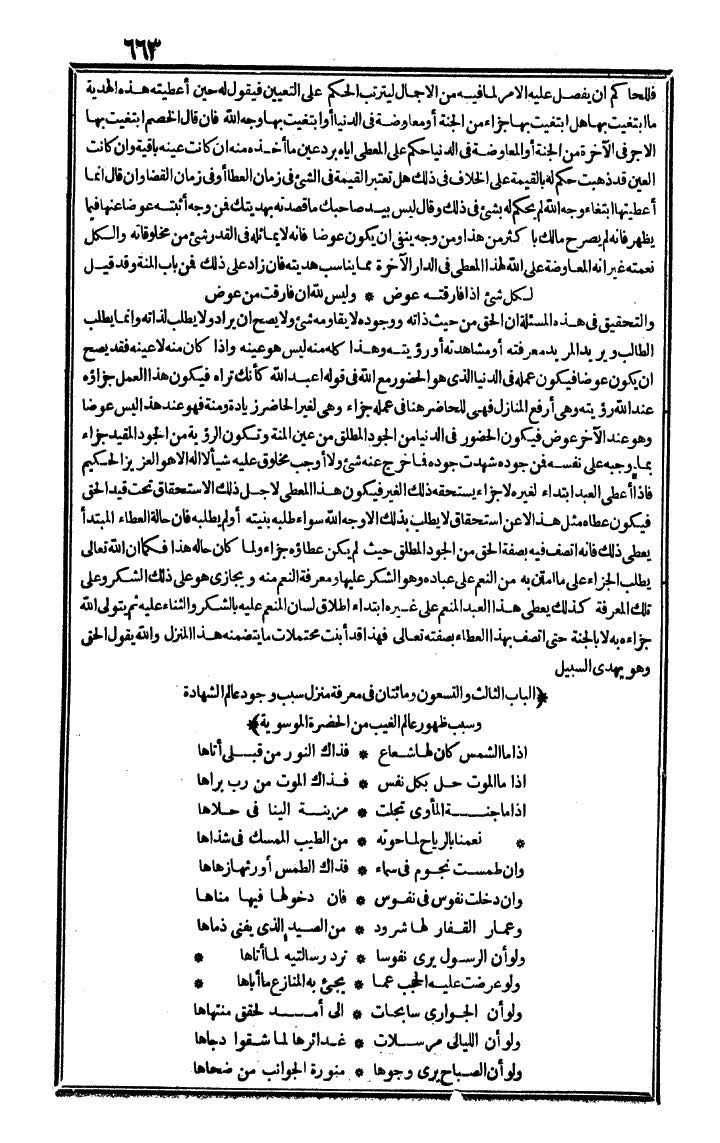 ٦٦٣
فللحاكم ان يفصل عليه الامر لما فيه من الاجمال ليترتب الحكم على التعيين فيقول له حين أعطيته هذه الهدية
ما ابتغيت بها هل ابتغيت بها جزاء من الجنة أو معاوضة فى الدنيا أو ابتغيت بها وجه الله فان قال الخصم ابتغيت بها
الاجر فى الآخرة من الجنة أو المعاوضة فى الدنيا حكم على المعطى اياه برد عين ما أخذه منه ان كانت عينه باقية وان كانت
العين قد ذهبت حكم له بالقيمة على الخلاف فى ذلك هل تعتبر القيمة فى الشئ فى زمان العطا أو فى زمان القضا وان قال انما
أعطيتها ابتغاء وجه الله لم يحكم له بشئ فى ذلك وقال ليس بيد صاحبك ما قصدته بهديتك فن وجه أثبته عوضا عنها فيما
يظهر فانه لم يصرح مالك باكثر من هذا ومن وجه ينفى ان يكون عوضا فانه لا يماثله فى القدر شئ من مخلوقاته والكل
نعمته غير انه المعاوضة على الله لهذا المعطى فى الدار الآخرة مما يناسب هديته فان زاد على ذلك فمن باب المنة وقد قيل
لكل شئ اذا فارقته عوض * وليس لله ان فارقت من عوض
والتحقيق فى هذه المسئلة ان الحق من حيث ذاته ووجوده لا يقاومه شئ ولا يصح ان يراد ولا يطلب لذاته وانما يطلب
الطالب ويريد المريد معرفته أو مشاهدته أو رؤيته وهذا كله منه ليس هو عينه واذا كان منه لا عينه فقد يصح
ان يكون عوضا فيكون عمله فى الدنيا الذى هو الحضور مع الله فى قوله اعبد الله كأنك تراه فيكون هذا العمل جزاؤه
عند الله رؤيته وهى أرفع المنازل فهى للحاضر هنا فى عمله جزاء وهى لغير الحاضر زيادة ومنة فهو عند هذا ليس عوضا
وهو عند الآخر عوض فيكون الحضور فى الدنيا من الجود المطلق من عين المنة وتكون الرؤية من الجود المقيد جزاء
بما وجبه على نفسه فن جوده شهدت جوده فما خرج عنه شئ ولا أوجب مخلوق عليه شيأ لا اله الا هو العزيز الحكيم
فاذا أعطى العبد ابتداء لغيره لا جزاء يستحقه ذلك الغير فيكون هذا المعطى لاجل ذلك الاستحقاق تحت قيد الحق
فيكون عطاه مثل هذا لا عن استحقاق لا يطلب بذلك الا وجه الله سواء طلبه بنيته أو لم يطلبه فان حالة العطاء المبتدأ
يعطى ذلك فانه اتصف فيه بصفة الحق من الجود المطلق حيث لم يكن عطاؤه جزاء ولما كان حاله هذا فكما ان الله تعالى
يطلب الجزاء على ما امتن به من النعم على عباده وهو الشكر عليها ومعرفة النعم منه ويجازى هو على ذلك الشكر وعلى
تلك المعرفة كذلك يعطى هذا العبد المنعم على غيره ابتداء اطلاق لسان المنعم عليه بالشكر والثناء عليه ثم يتولى الله
جزاءه به لا بالجنة حتى اتصف بهذا العطاء بصفته تعالى فهذا قد أبنت محتملات ما يتضمنه هذا المنزل والله يقول الحق
وهو يهدى السبيل
﴿الباب الثالث والتسعون ومائتان فى معرفة منزل سبب وجود عالم الشهادة
وسبب ظهور عالم الغيب من الحضرة الموسوية﴾
اذا ما الشمس كان لها شعاع * فذاك النور من قبلى أتاها
اذا ما الموت حل بكل نفس * فذاك الموت من رب براها
اذا ما جنة المأوى تجلت * مزينة الينا فى حلاها
* نعمنا بالرياح لما حوته * من الطيب الممسك فى شذاها
وان طمست نجوم فى سماء * فذاك الطمس أورثها زهاها
وان دخلت نفوس فى نفوس * فان دخولها فيها مناها
وعمار القفار لها شرود * من الصيد الذى يفنى ذماها
ولو أن الرسول يرى نفوسا * ترد رسالتيه لما أتاها *
ولو عرضت عليه الحجب عما * يجئ به المنازع ما أباها *
ولو أن الجوارى سابحات * الى أمد لحقق منتهاها
ولو أن الليالى مرسلات * غدائرها لما شقوا دجاها
ولو أن الصباح يرى وجوها * منورة الجوانب من ضحاها